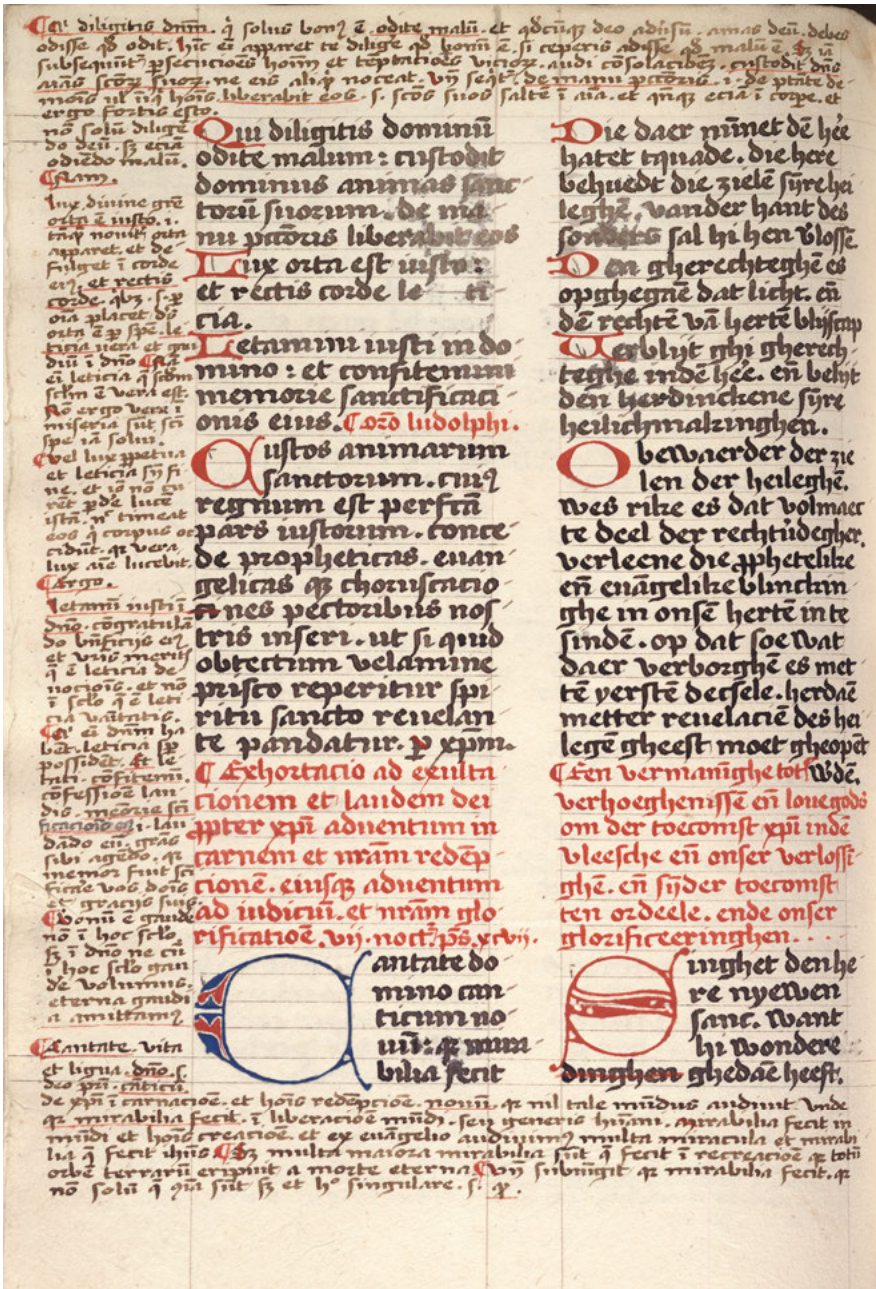 Qui diligitis dnm. q̇ solus bonꝰ ē odite malū. et qdcūqꝫ deo adūsū. amas deū. debes
odisse qd odit. hīc eī apparet te diligē qd bonū ē. si ceperis odisse qd malū ē. Sꝫ iā
subsequūt' ꝑsecucioēs hoīm et teptacioēs vicioꝝ. audi cōsolacōeꝫ. custodit dn̄s
aīas sctoꝝ suoꝝ. ne eis aliq̇ noceat. vn̄ seqt'. de manu pctōris. i. de ptāte de
moīs ul hoīs liberabit eos. s. sctōs suos saltē ī aīa. et qn̄qꝫ eciā ī corpe. et
ergo fortis esto.
nō solū diligē
do deū. sꝫ eciā
odiēdo malū.
Nam.
lux divine grē
orta ē iusto. i.
noviṫ orta
apparet. et de
fulget ī corde
eiꝰ. et rectis
corde. qbꝫ. s. ꝑ
oīa placet ds
orta ē ꝑ spē. le
ticia vera et gau
diū ī dn̄o Nā
eī leticia
sclm ē vera est.
Nō ergo vera ī
miseria sūt scī
spe iā solū.
Vel lux ꝑpetua
et leticia sn̄ fi
ne. et iō nō cu
rēt ꝑdē lucē
istā. nec timeāt
eos q̇ corpus oc
cidūt. qꝛ vera
lux aīe lucebit.
Ergo.
letamī iusti ī
dn̄o. cōgratulā
do bn̄ficijs eiꝰ
et vris meritꝭ
q̄ ē leticia de
nocioīs. et nō
ī sclo q̄ ē leti
cia vanitatis.
Qꝛ eī dn̄m ha
bēt. leticiā sꝑ
possidēt. Et le
tati. cōfitemī.
cōfessioē lau
dis. meōrie scī
ficacioīs eiꝰ. i. lau
dādo eū. grās
sibi agēdo. qꝛ
memor fuit scī
ficāe vos donis
et gracijs suis
Bonū ē gaude
nō ī hoc sclo.
sꝫ ī dn̄o ne cū
ī hoc sclo gau
de volumus.
eterna gaudi
a amittamꝰ
Cantate. vita
et ligua. dn̄o. s.
deo pri. cāticū
Qui diligitis dominū
odite malum : custodit
dominus animas sanc
torū suorum. de ma
nu pctōris liberabit eos
Lux orta est iusto :
et rectis corde le ti
cia.
Letamini iusti in do
mino : et confitemini
memorie sanctificaci
onis eius. Orō ludolphi.
Custos animarum
sanctorum. cuiꝰ
regnum est perfctā
pars iustorum. conce
de propheticas. evan
gelicas qꝫ choruscacio
nes pectoribus nos
tris inseri. ut si quid
obtectum velamine
prisco reperitur spi
ritu sancto revelan
te pandatur. ꝑ xpm.
Exhortacio ad exulta
cionem et laudem dei
ꝓpter xpi adventum in
carnem et nrām redēp
cionē. eiusqꝫ adventum
ad iudiciū. et nrām glo
rificatioē. vij. noct. ps. xcvij.
Cantate do
mino can
ticum no
uū: qꝛ mira
bilia fecit
Die daer mīnet dē hēe
hatet tquade. die here
behuedt die zielē sijre hei
leghē. vander hant des
sonders sal hi hen vlossē.
Den gherechteghē es
opghegaē dat licht. eñ
dē rechtē vā hertē blijscap
Verblijt ghi gherech
teghe indē hēe. eñ belijt
den herdinckene sijre
heilichmakinghen.
O bewaerder der zie
len der heileghē.
wes rike es dat volmaec
te deel der rechtūdegher.
verleene die ꝓphetelike
eñ euāgelike blinckin
ghe in onsē hertē in te
sindē. op dat soe wat
daer verborghē es met
tē yerstē decsele. herdaē
metter reuelaciē des hei
legē gheest moet gheopēt
Een vermanīghe tott wdē.
verhoeghenissē eñ loue gods
om der toecomst xpi indē
vleesche eñ onser verlossī
ghē. eñ sijder toecomst
ten ordeele. ende onser
glorificeeringhen. . .
Singhet den he
re nyewen
sanc. want
hi wondere
dinghen ghedaē heeft.
de xpi ī carnacioē. et hoīs redēpcioē. nouū. qꝛ nil tale mūdus audiuit unde
qꝛ mirabilia fecit. ī liberacioē mūdi. seu generis hūani. mirabilia fecit in
mūdi et hoīs creacioē. et ex euāgelio audiuimꝰ multa miracula et mirabi
lia q̄ fecit ihūs Sꝫ multa maiora mirabilia sūt q̄ fecit ī recreacioē qꝛ totū
orbē terrarū eripuit a morte eterna. vn̄ subiūgit qꝛ mirabilia fecit. qꝛ
nō solū q̄ sūt sꝫ et hº singulare. s. qꝛ.